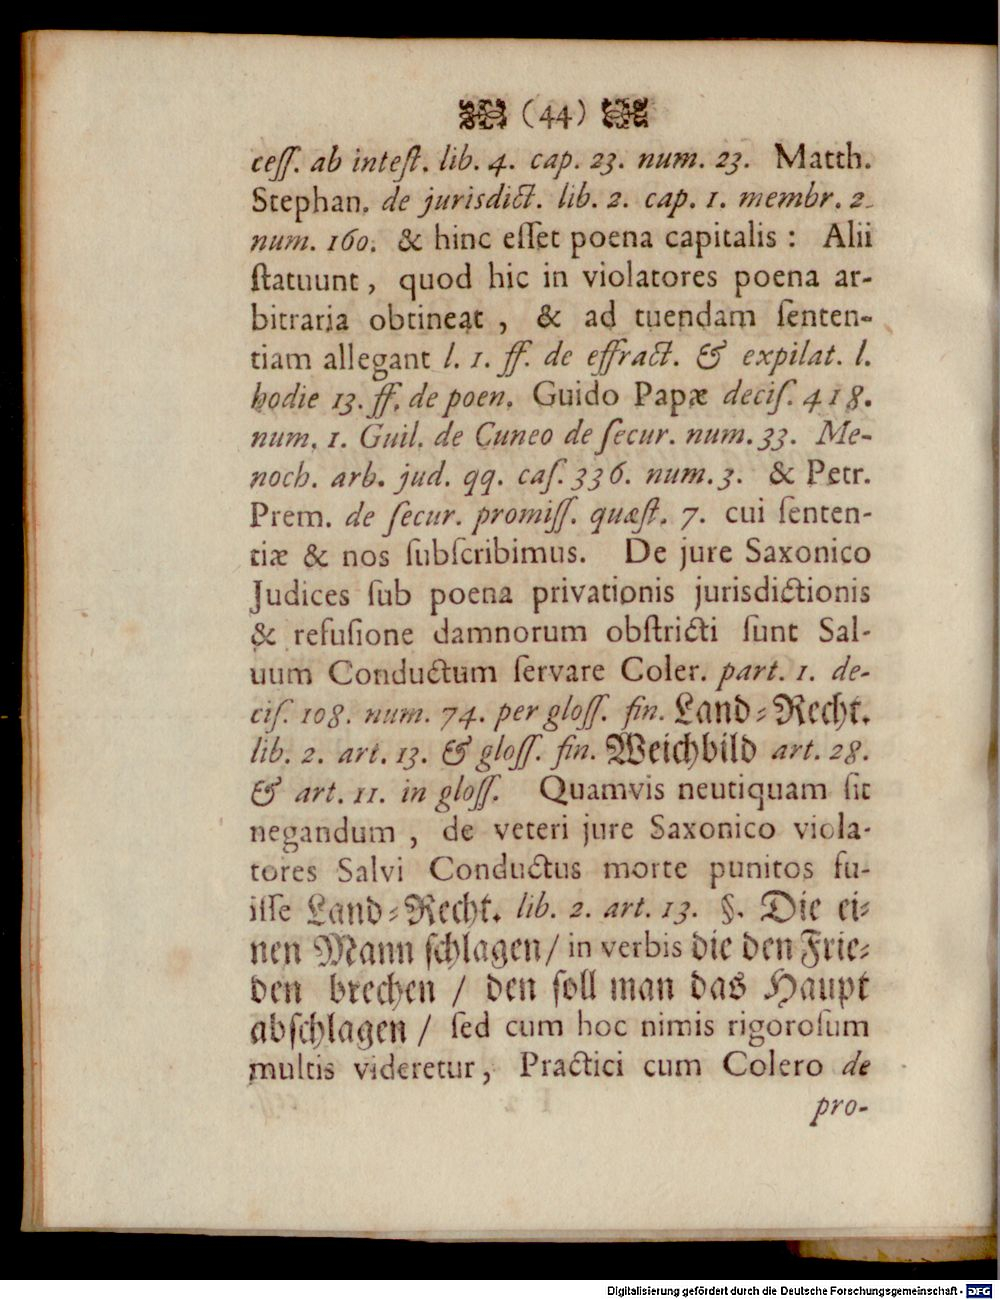 (44)
ceſſ. ab inteſt. lib. 4. cap. 23. num. 23. Matth.
Stephan. de jurisdict. lib. 2. cap. 1. membr. 2.
num. 160. & hinc eſſet poena capitalis : Alii
ſtatuunt, quod hic in violatores poena ar-
bitraria obtineat , & ad tuendam ſenten-
tiam allegant l. 1. ff. de effract. & expilat. l.
hodie 13. ff. de poen. Guido Papæ deciſ. 418.
num. 1. Guil. de Cuneo de ſecur. num. 33. Me-
noch. arb. jud. qq. caſ. 336. num. 3. & Petr.
Prem. de ſecur. promiſſ. quæſt. 7. cui ſenten-
tiæ & nos ſubſcribimus. De jure Saxonico
Judices ſub poena privationis jurisdictionis
& refuſione damnorum obſtricti ſunt Sal-
uum Conductum ſervare Coler. part. 1. de-
ciſ. 108. num. 74. per gloſſ. fin. Land-Recht.
lib. 2. art. 13. & gloſſ. fin. Weichbild art. 28.
& art. 11. in gloſſ. Quamvis neutiquam ſit
negandum , de veteri jure Saxonico viola-
tores Salvi Conductus morte punitos fu-
iſſe Land-Recht. lib. 2. art. 13. §. Die ei-
nen Mann ſchlagen/ in verbis die den Frie-
den brechen / den ſoll man das Haupt
abſchlagen / ſed cum hoc nimis rigoroſum
multis videretur, Practici cum Colero de
pro-
Digitalisierung gefördert durch die Deutsche Forschungsgemeinschaft - DFG